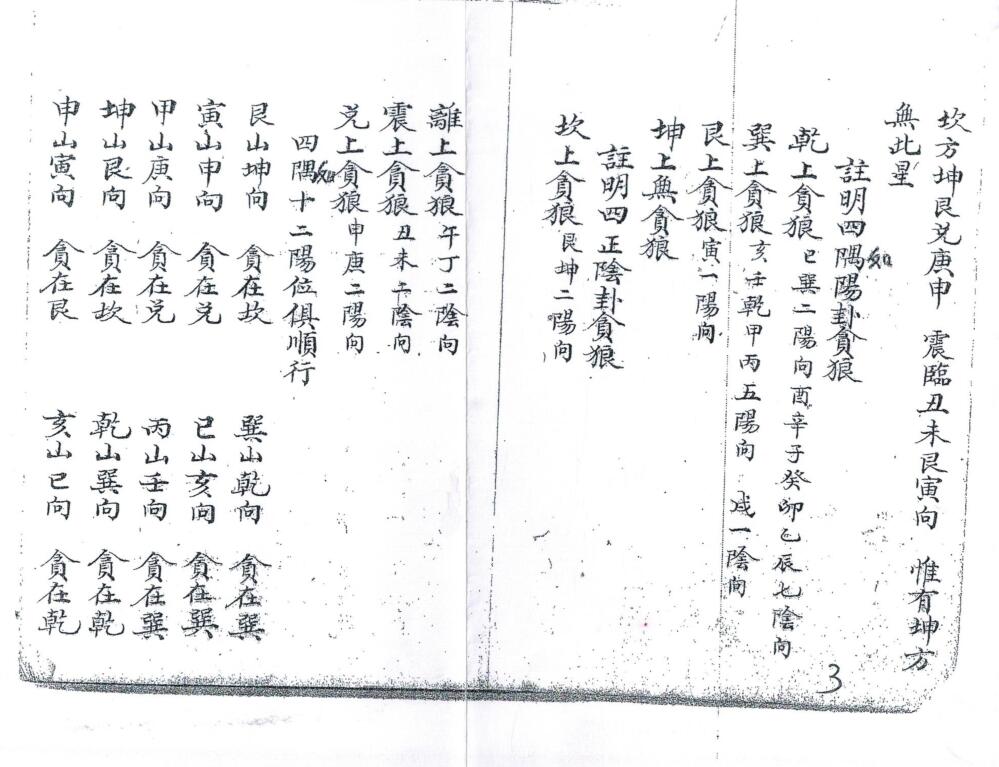 坎方坤艮兌庚申 震臨丑未艮寅向 惟有坤方
無此星
註明四隅如陽卦貪狼
乾上貪狼巳巽二陽向酉辛子癸卯乙辰七陰向
巽上貪狼亥壬乾甲丙五陽向 戌一陰向
艮上貪狼寅一陽向
坤上無貪狼
註明四正陰卦貪狼
坎上貪狼艮坤二陽向
離上貪狼午丁二陰向
震上貪狼丑未二陰向
兌上貪狼申庚二陽向
四隅如十二陽位俱順行
艮山坤向 貪在坎 巽山乾向 貪在巽
寅山申向 貪在兌 巳山亥向 貪在巽
甲山庚向 貪在兌 丙山壬向 貪在巽
坤山艮向 貪在坎 乾山巽向 貪在乾
申山寅向 貪在艮 亥山巳向 貪在乾
3